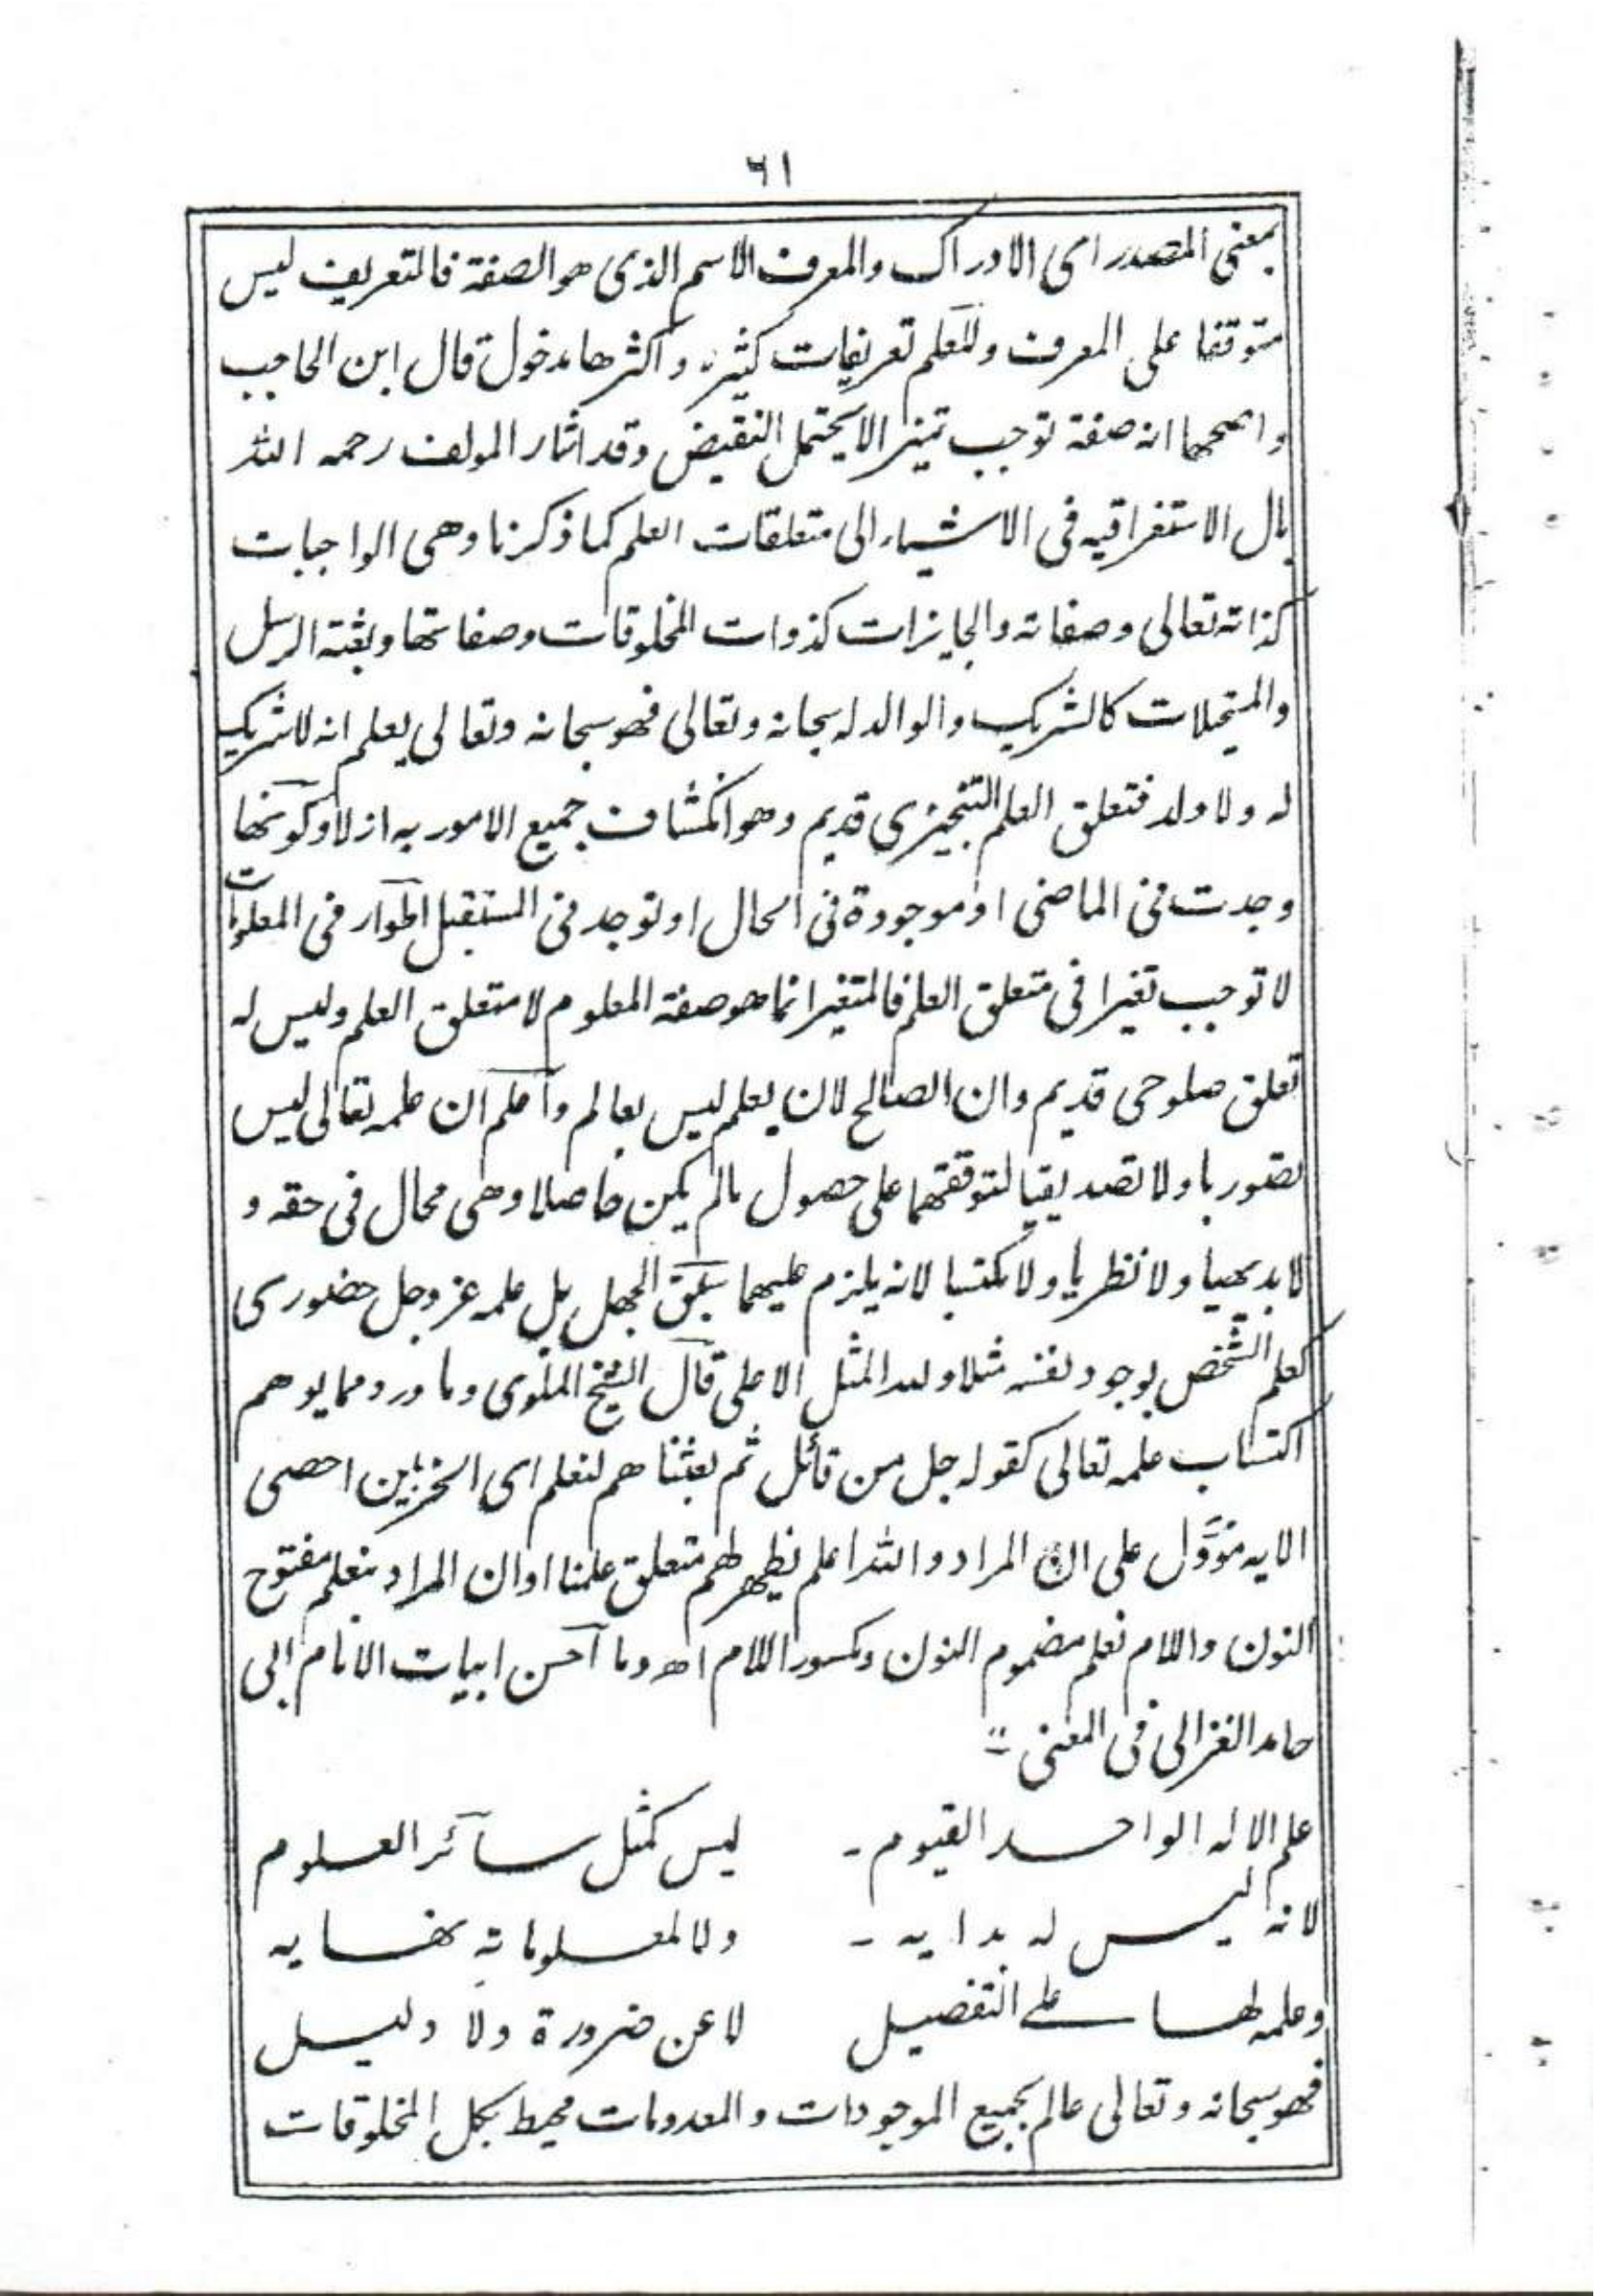 ٦١
بمعنى المصدر اى الادراك والمعرف الاسم الذى هو الصفة فالتعريف ليس
متوقفا على المعرف وللعلم تعريفات كثيرة واكثرها مدخول قال ابن الحاجب
واصحها انه صفة توجب تميزا لا يحتمل النقيض وقد اشار المولف رحمه الله
بال الاستغراقيه فى الاشياء الى متعلقات العلم كما ذكرنا وهى الواجبات
كذاته تعالى وصفاته والجايزات كذوات المخلوقات وصفاتها وبعثة الرسل
والمستحيلات كالشريك والوالد له سبحانه وتعالى فهو سبحانه وتعالى يعلم انه لا شريك
له ولا ولد فتعلق العلم التنجيزى قديم وهو انكشاف جميع الامور به ازلا وكونها
وجدت فى الماضى او موجودة فى الحال او توجد فى المستقبل اطوار فى المعلومات
لا توجب تغيرا فى متعلق العلم فالمتغير انما هو صفة المعلوم لا متعلق العلم وليس له
تعلق صلوحى قديم وان الصالح لان يعلم ليس بعالم واعلم ان علمه تعالى ليس
تصوريا ولا تصديقيا لتوقفهما على حصول مالم يكن حاصلا وهى محال فى حقه و
لا بديهيا ولا نظريا ولا مكتسبا لانه يلزم عليهما سبق الجهل بل علمه عز وجل حضورى
كعلم الشخص بوجود نفسه مثلا ولله المثل الاعلى قال الشيخ الملوى وما ورد مما يوهم
اكتساب علمه تعالى كقوله جل من قائل ثم بعثناهم لنعلم اى الحزبين احصى
الايه مؤول على ان المراد والله اعلم نظهر لهم متعلق علمنا او ان المراد بنعلم مفتوح
النون واللام نعلم مضموم النون ومكسور اللام اهـ وما احسن ابيات الامام ابى
حامد الغزالى فى المعنى
علم الاله الواحد القيوم - ليس كمثل سائر العلوم
لانه ليس له بدايه - ولا لمعلوماته نهايه
وعلمه لها على التفصيل لا عن ضرورة ولا دليل
فهو سبحانه وتعالى عالم بجميع الموجودات والمعدومات محيط بكل المخلوقات